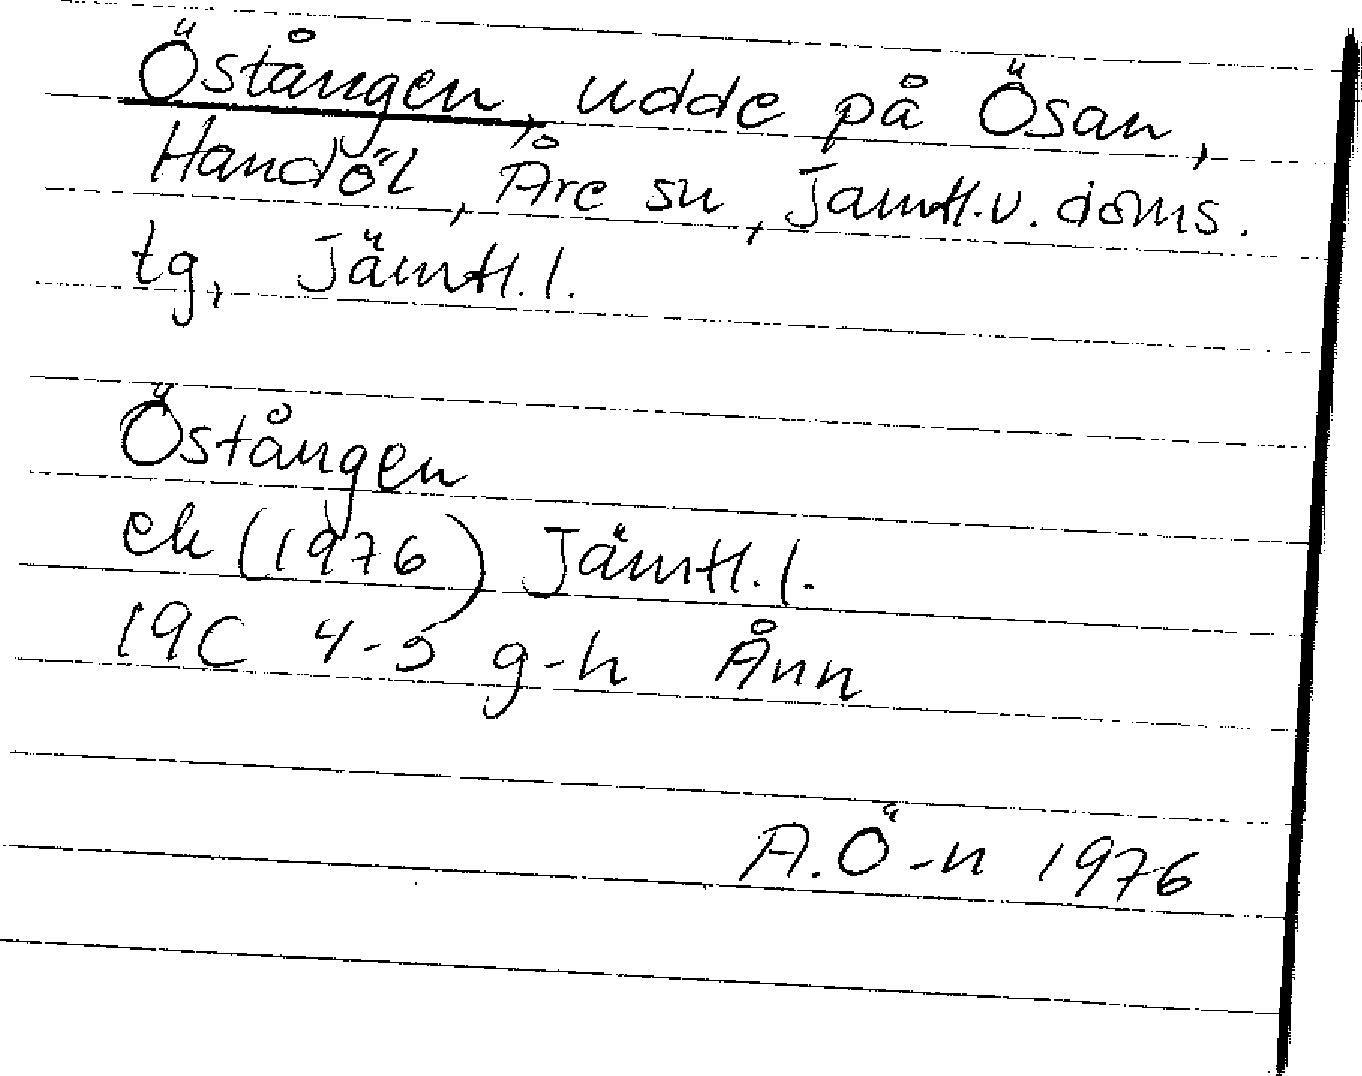 Östången, udde på Ösan,
Handöl, Åre sn, Jämtl.v. doms.
tg, Jämtl.l.
Östången
ek (1976) Jämtl.l.
19C 4-5 g-h Ånn
A.Ö-n 1976